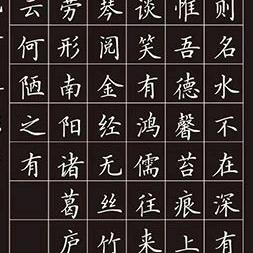 则名水不在深有
惟吾德馨苔痕上
谈笑有鸿儒往来
琴阅金经无丝竹
劳形南阳诸葛庐
云何陋之有